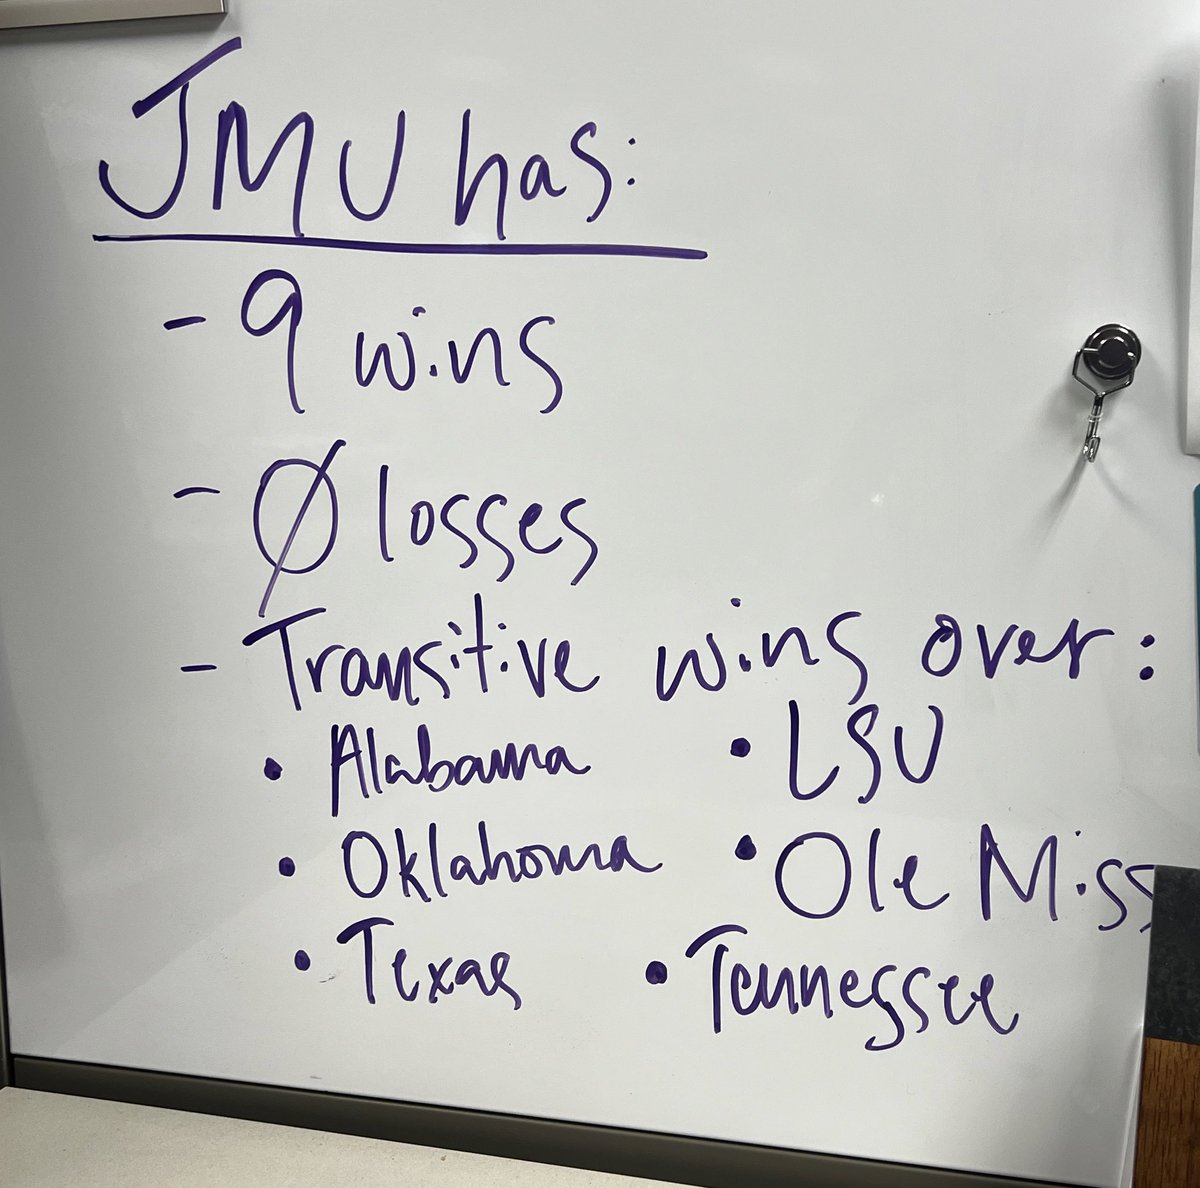 JMU has:
- 9 wins
- Ø losses
- Transitive wins over:
• Alabama • LSU
• Oklahoma • Ole Miss
• Texas • Tennessee